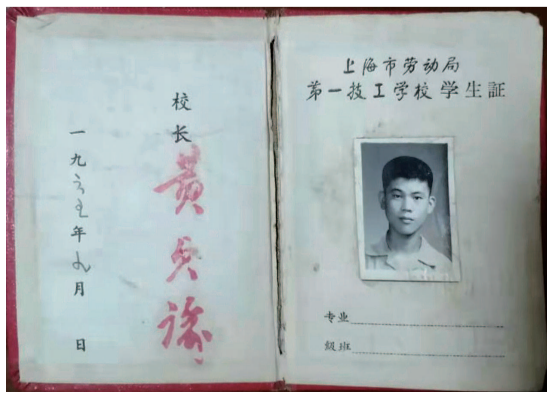 校长 黄
一九六五年九月 日
上海市劳动局
第一技工学校学生証
专业
级班